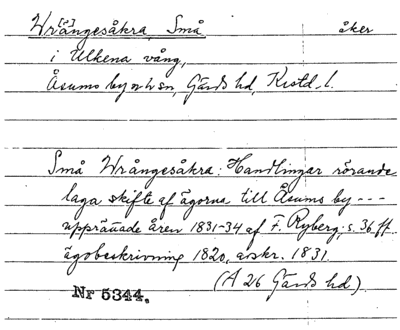 Wr[å]ngesåkra, Små åker
i Ulkena vång,
Åsums by o h sn, Gärds hd, Kristd. l.
Små Wrångesåkra: Handlingar rörande
laga skifte af ägorna till Åsums by ---
upprättade åren 1831-34 af F. Ryberg; s. 36 ff.
ägobeskrivning 1820, avskr. 1831.
(A 26 Gärds hd)
Nr 5344.